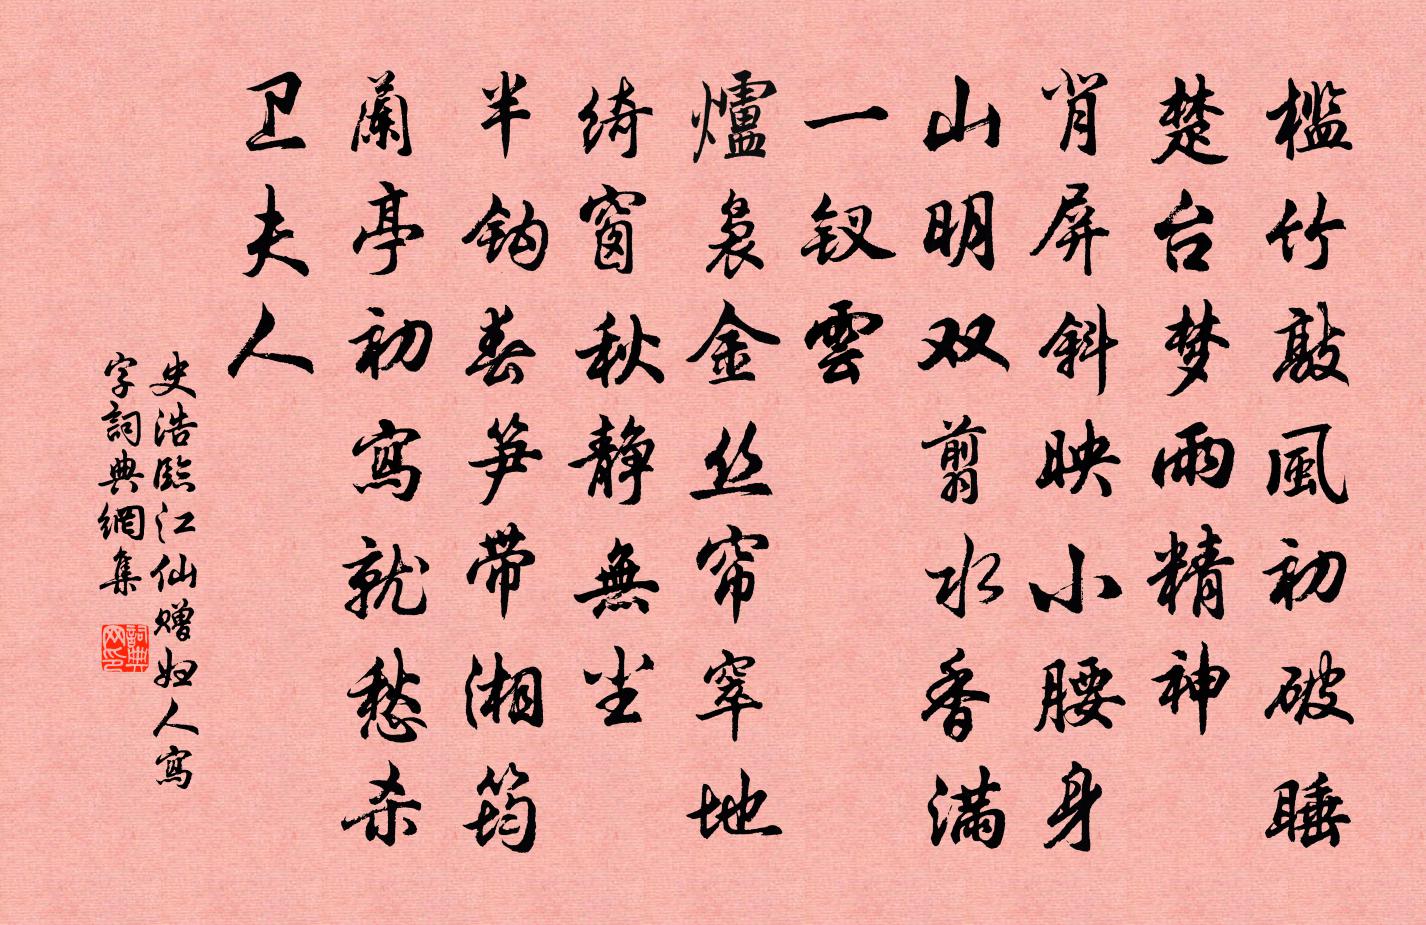 槛竹敲風初破睡
楚台梦雨精神
肖屏斜映小腰身
山明双剪水香满
一钗雲
爐袅金丝帘窣地
绮窗秋静無尘
半钩春笋带湘筠
蘭亭初寫就愁杀
卫夫人
史浩臨江仙赠妇人寫
字詞典網集
詞典网印